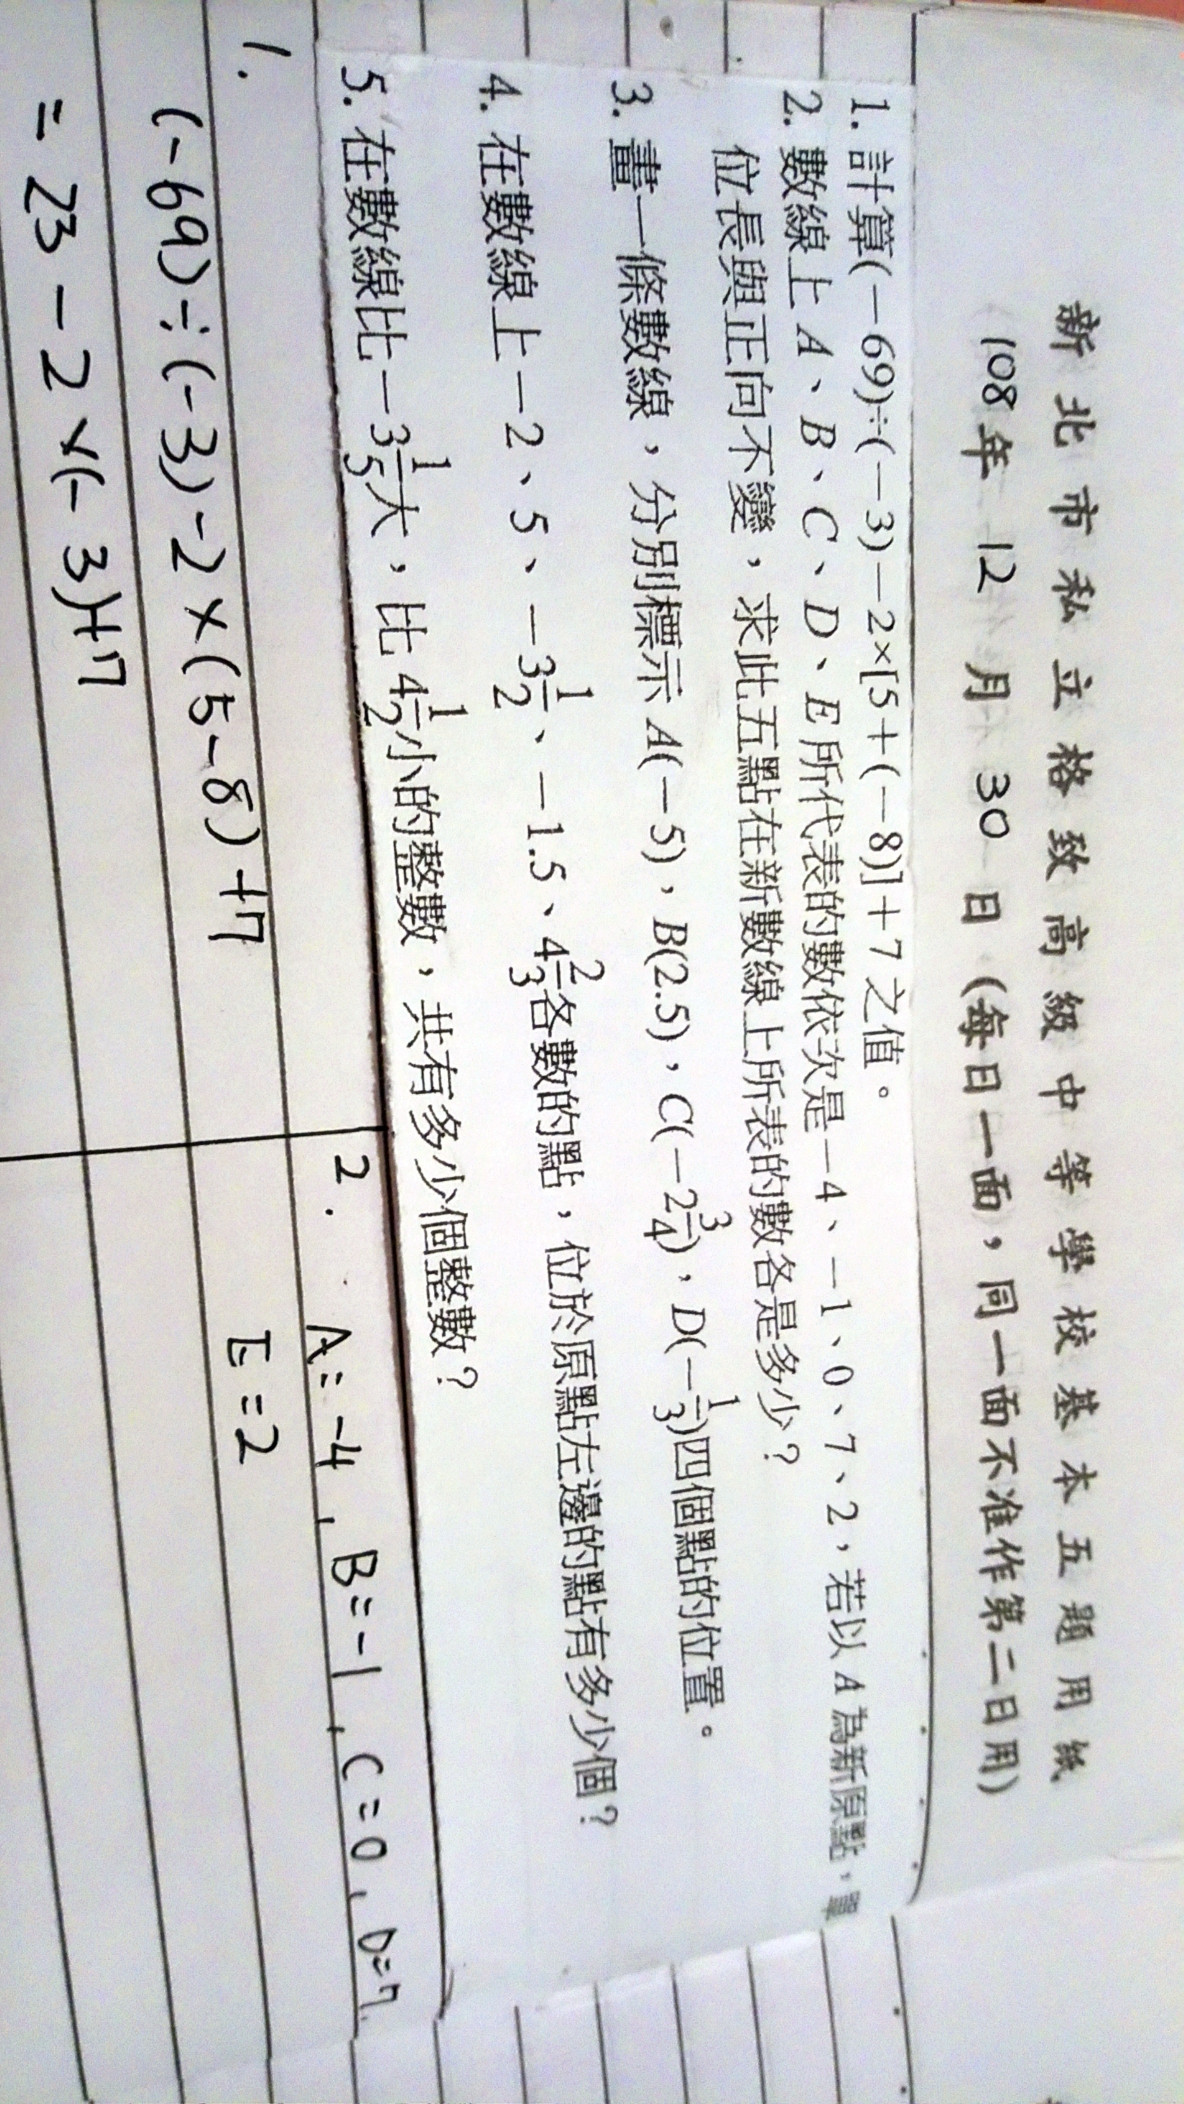 新北市私立格致高級中等學校基本五題用紙
108年 12 月 30 日 (每日一面，同一面不准作第二日用)
1. 計算(－69)÷(－3)－2×[5＋(－8)]＋7 之值。
2. 數線上 A、B、C、D、E 所代表的數依次是－4、－1、0、7、2，若以 A 為新原點，單
位長與正向不變，求此五點在新數線上所表的數各是多少？
3. 畫一條數線，分別標示 A(－5)，B(2.5)，C(－2 3/4)，D(－1/3)四個點的位置。
4. 在數線上－2、5、－3 1/2、－1.5、4 2/3各數的點，位於原點左邊的點有多少個？
5. 在數線比－3 1/5大，比 4 1/2小的整數，共有多少個整數？
1.
(-69)÷(-3)-2×(5-8)+7
= 23-2×(-3)+7
2. A=-4, B=-1, C=0, D=7
E=2